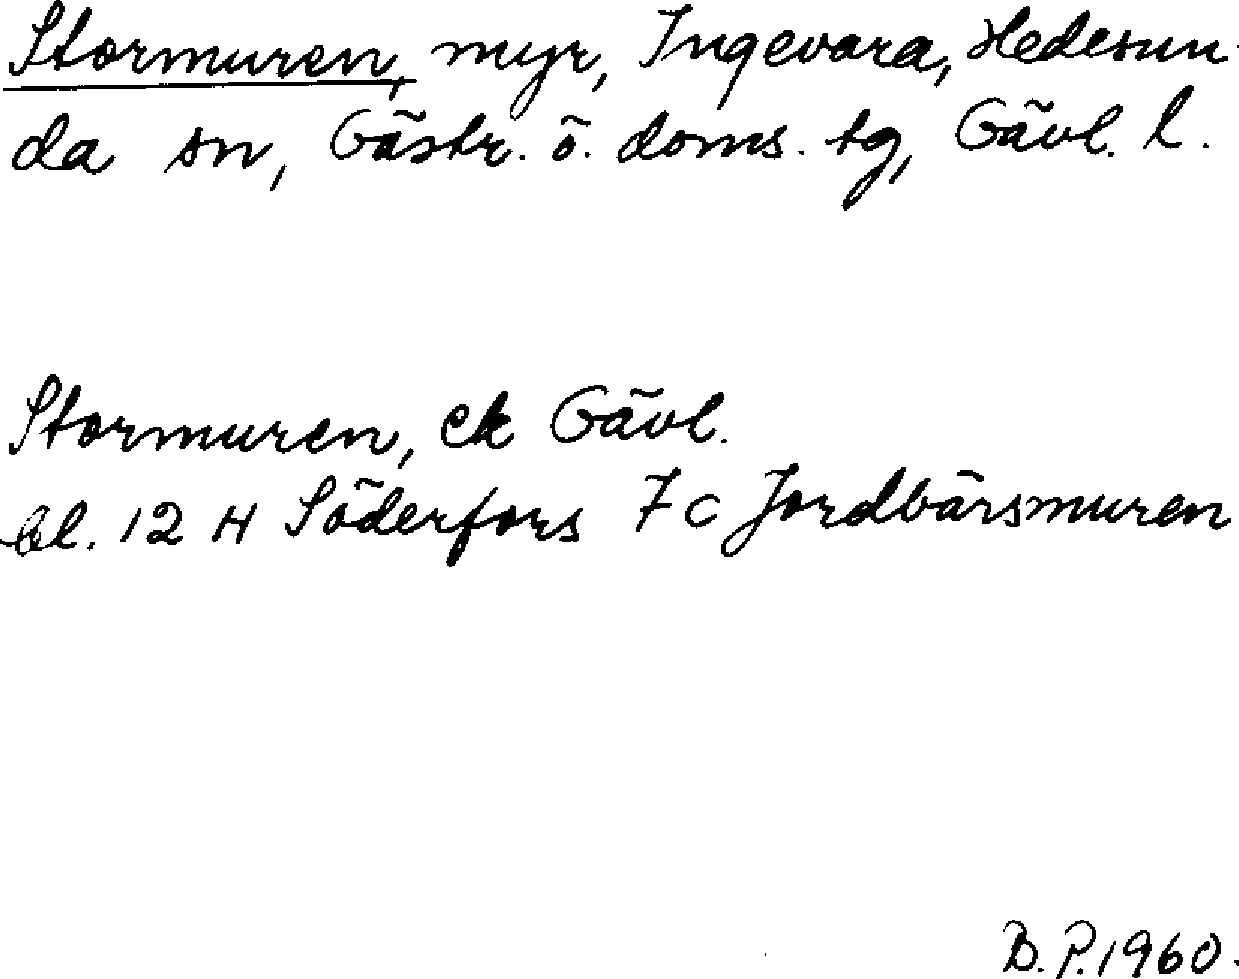 Stormuren, myr, Ingevara, Hedesun-
da sn, Gästr. ö. doms. tg, Gävl. l.
Stormuren, ek Gävl.
bl. 12 H Söderfors 7 c Jordbärsmuren
B. P. 1960.